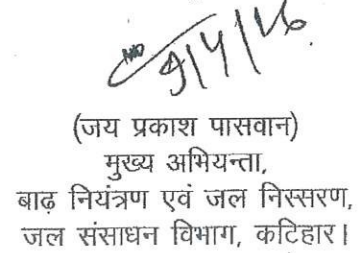 9/4/26
(जय प्रकाश पासवान)
मुख्य अभियन्ता,
बाढ़ नियंत्रण एवं जल निस्सरण,
जल संसाधन विभाग, कटिहार।